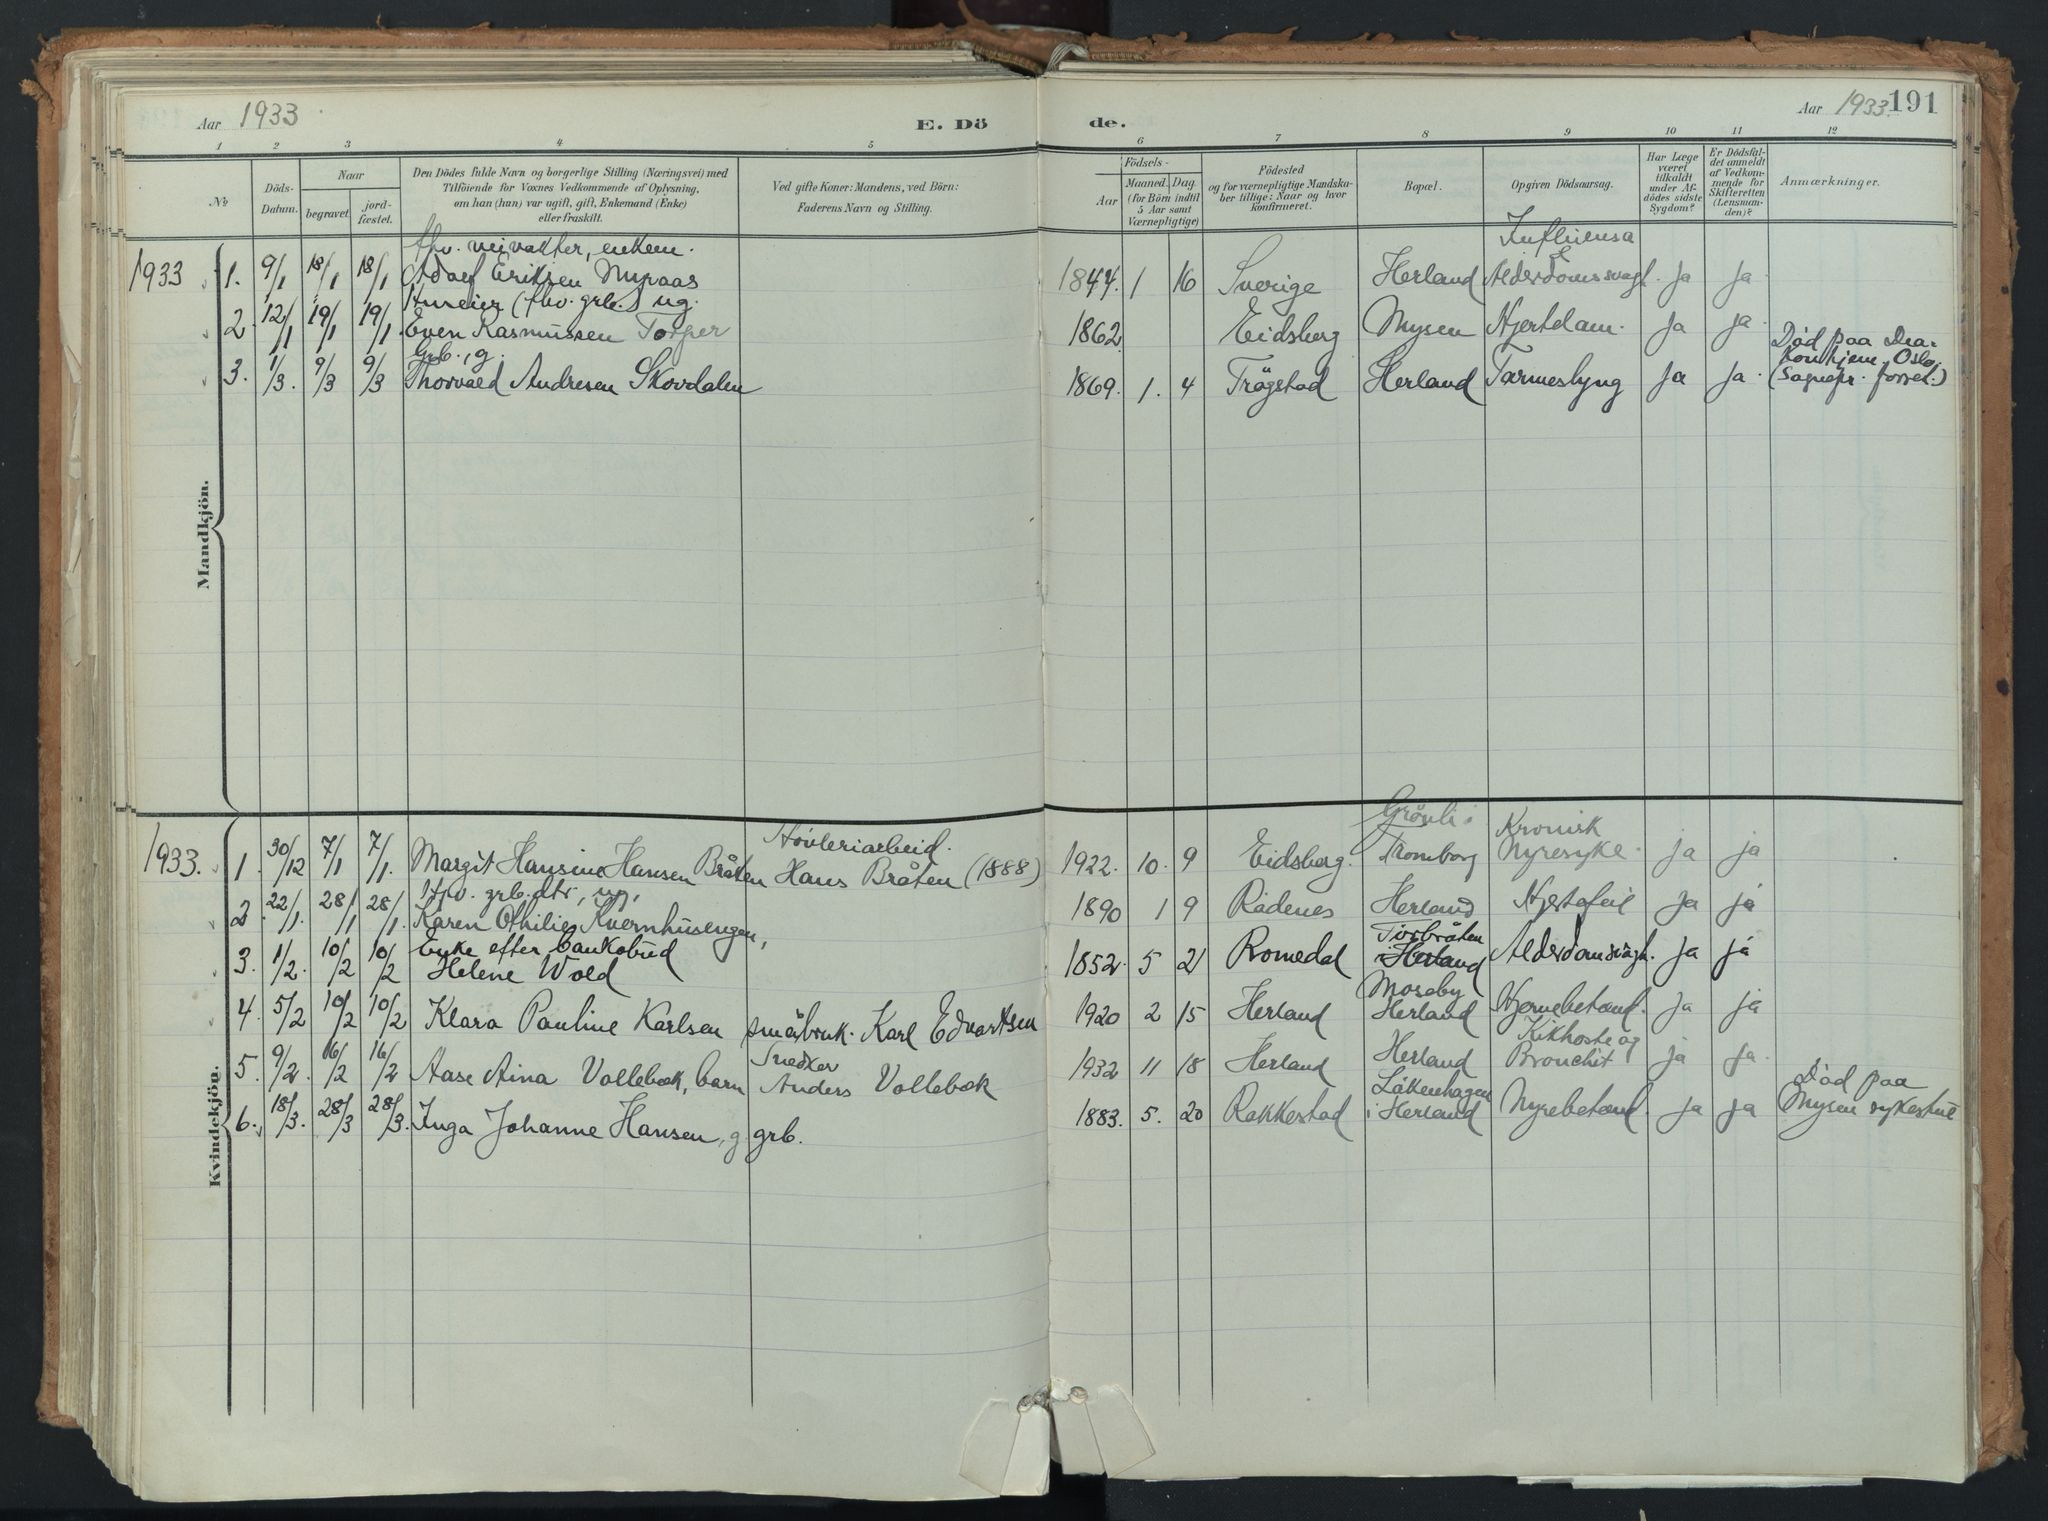 Aar 1933
E. Dö
de.
Aar 1933. 191
1 2 3 4 5 6 7 8 9 10 11 12
No
Döds-
Datum.
Naar
begravet.
jord-
fæstet.
Den Dödes fulde Navn og borgerlige Stilling (Næringsvei) med
Tilföiende for Voxnes Vedkommende af Oplysning,
om han (hun) var ugift, gift, Enkemand (Enke)
eller fraskilt.
Ved gifte Koner: Mandens, ved Börn:
Faderens Navn og Stilling.
Födsels-
Aar
Maaned. Dag.
(for Börn indtil
5 Aar samt
Værnepligtige)
Födested
og for værnepligtige Mandska-
ber tillige: Naar og hvor
Konfirmeret.
Bopæl.
Opgiven Dödsaarsag.
Har Læge
været
tilkaldt
under Af-
dödes sidste
Sygdom?
Er Dödsfal-
det anmeldt
af Vedkom-
mende for
Skifteretten
(Lensman-
den)?
Anmærkninger.
Mandkjön.
fhv. veivakter, enkem. Influensa
1933 1. 9/1 18/1 18/1 Adolf Eriksen Myraas 1844. 1 16 Sverige Herland Alderdomssvagh. ja ja
Huseier (fhv. grb.) ug.
2. 12/1 19/1 19/1 Even Rasmussen Torper 1862 Eidsberg Mysen Hjertelam. ja ja
Grb., g. Död paa Dia-
konhjem. Oslo.
3. 1/3. 9/3 9/3 Thorvald Andresen Skovdalen 1869. 1. 4 Trögstad Herland Tarmeslyng ja ja. (Sognepr. forret.)
Kvindekjön.
Hövleriarbeid. Grönli i Kronisk
1933. 1. 30/12 7/1 7/1. Margit Hansine Hansen Bråten Hans Bråten (1888) 1922. 10. 9 Eidsberg. Tromborg Nyresyke. ja ja
Fhv. grb. dtr, ug,
2 22/1. 28/1 28/1. Karen Othilie Kvernhusengen, 1890 1 9 Rödenes Herland Hjertefeil ja ja
Enke efter bankobud Torbråten
3. 1/2. 10/2 10/2 Helene Wold 1852. 5 21 Romedal i Herland Alderdomsvagh. ja ja
Moseby
4. 5/2 10/2 10/2 Klara Pauline Karlsen småbruk. Karl Edvartsen 1920 2 15 Herland Herland Hjernebetænd. ja ja
Snedker Kikhoste og
5. 9/2. 16/2 16/2 Aase Aina Vollebæk, barn Anders Vollebæk 1932 11 18 Herland Herland Bronchit ja ja.
Lökenhagen Död paa
6. 18/3. 28/3 28/3. Inga Johanne Hansen, g. grb. 1883. 5. 20 Rakkestad i Herland Nyrebetænd. ja ja Mysen sykestue